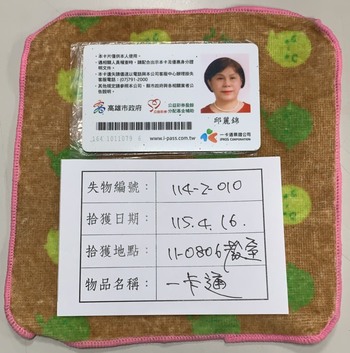 ‧本卡片僅供本人使用。
高雄市政府
公益彩券盈餘
分配基金補助
邱麗錦
www.i-pass.com.tw
一卡通票證公司
IPASS CORPORATION
失物編號: 114-2-010
拾獲日期: 115.4.16.
拾獲地點: 11-0806教室
物品名稱: 一卡通